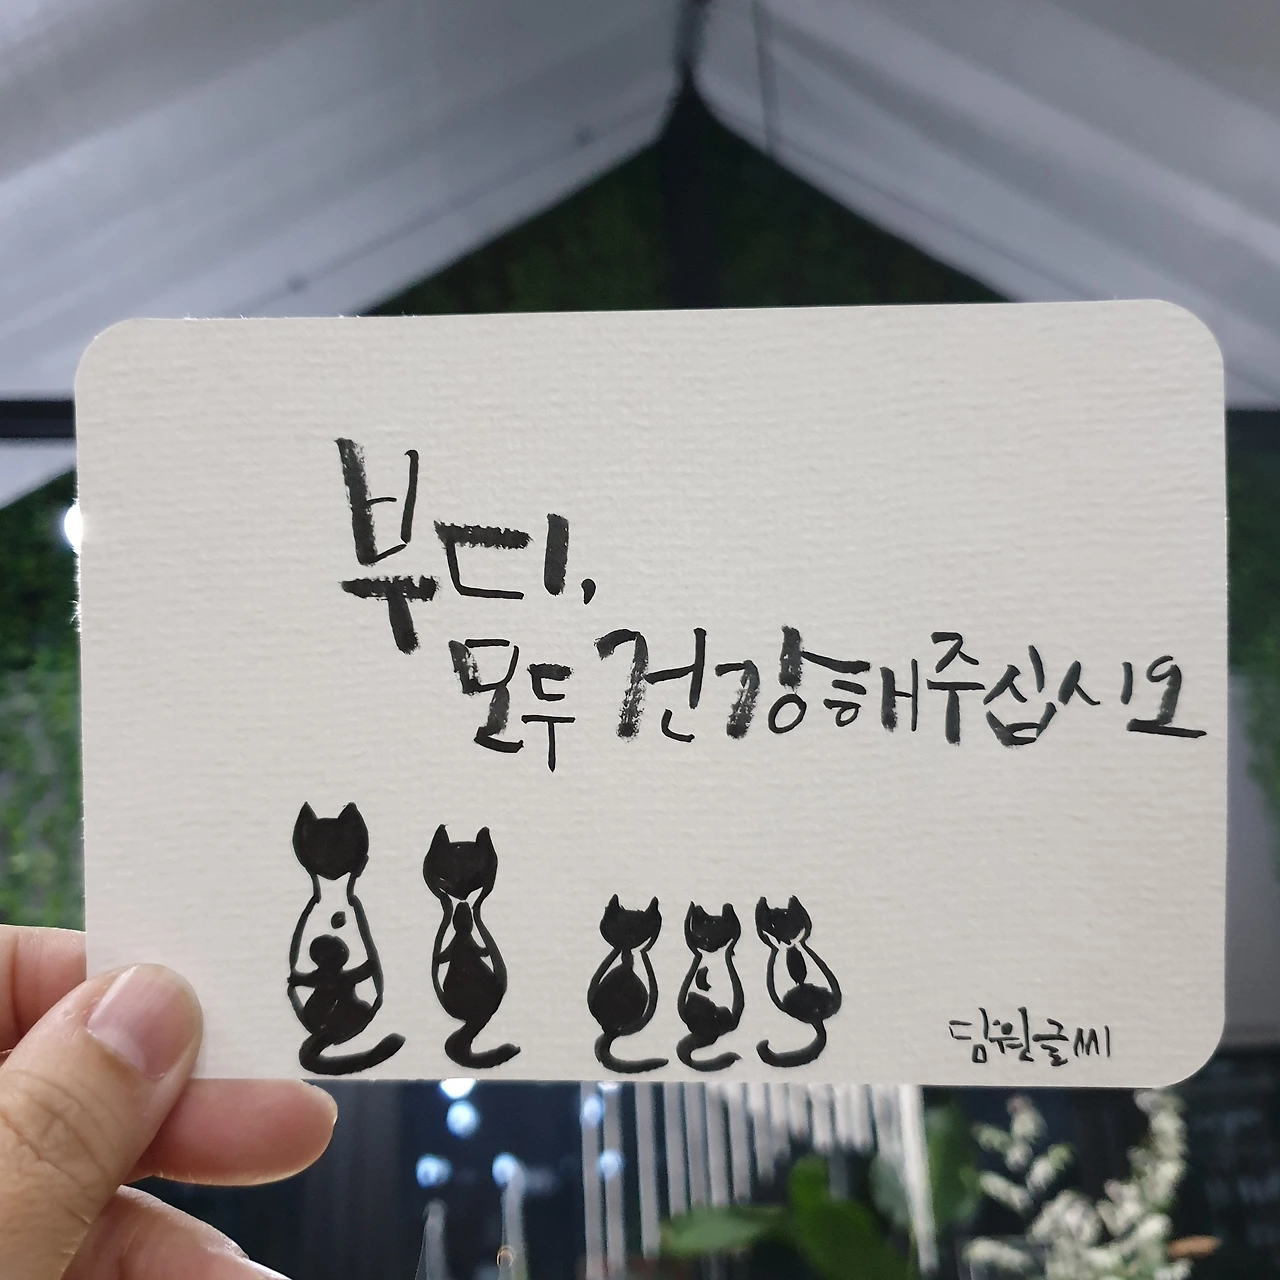 부디,
모두 건강해주십시오
담원글씨